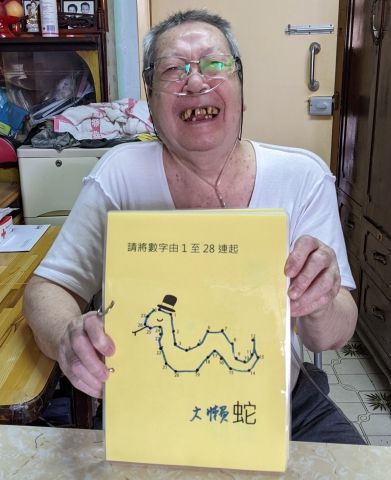 請將數字由 1 至 28 連起
大懶蛇